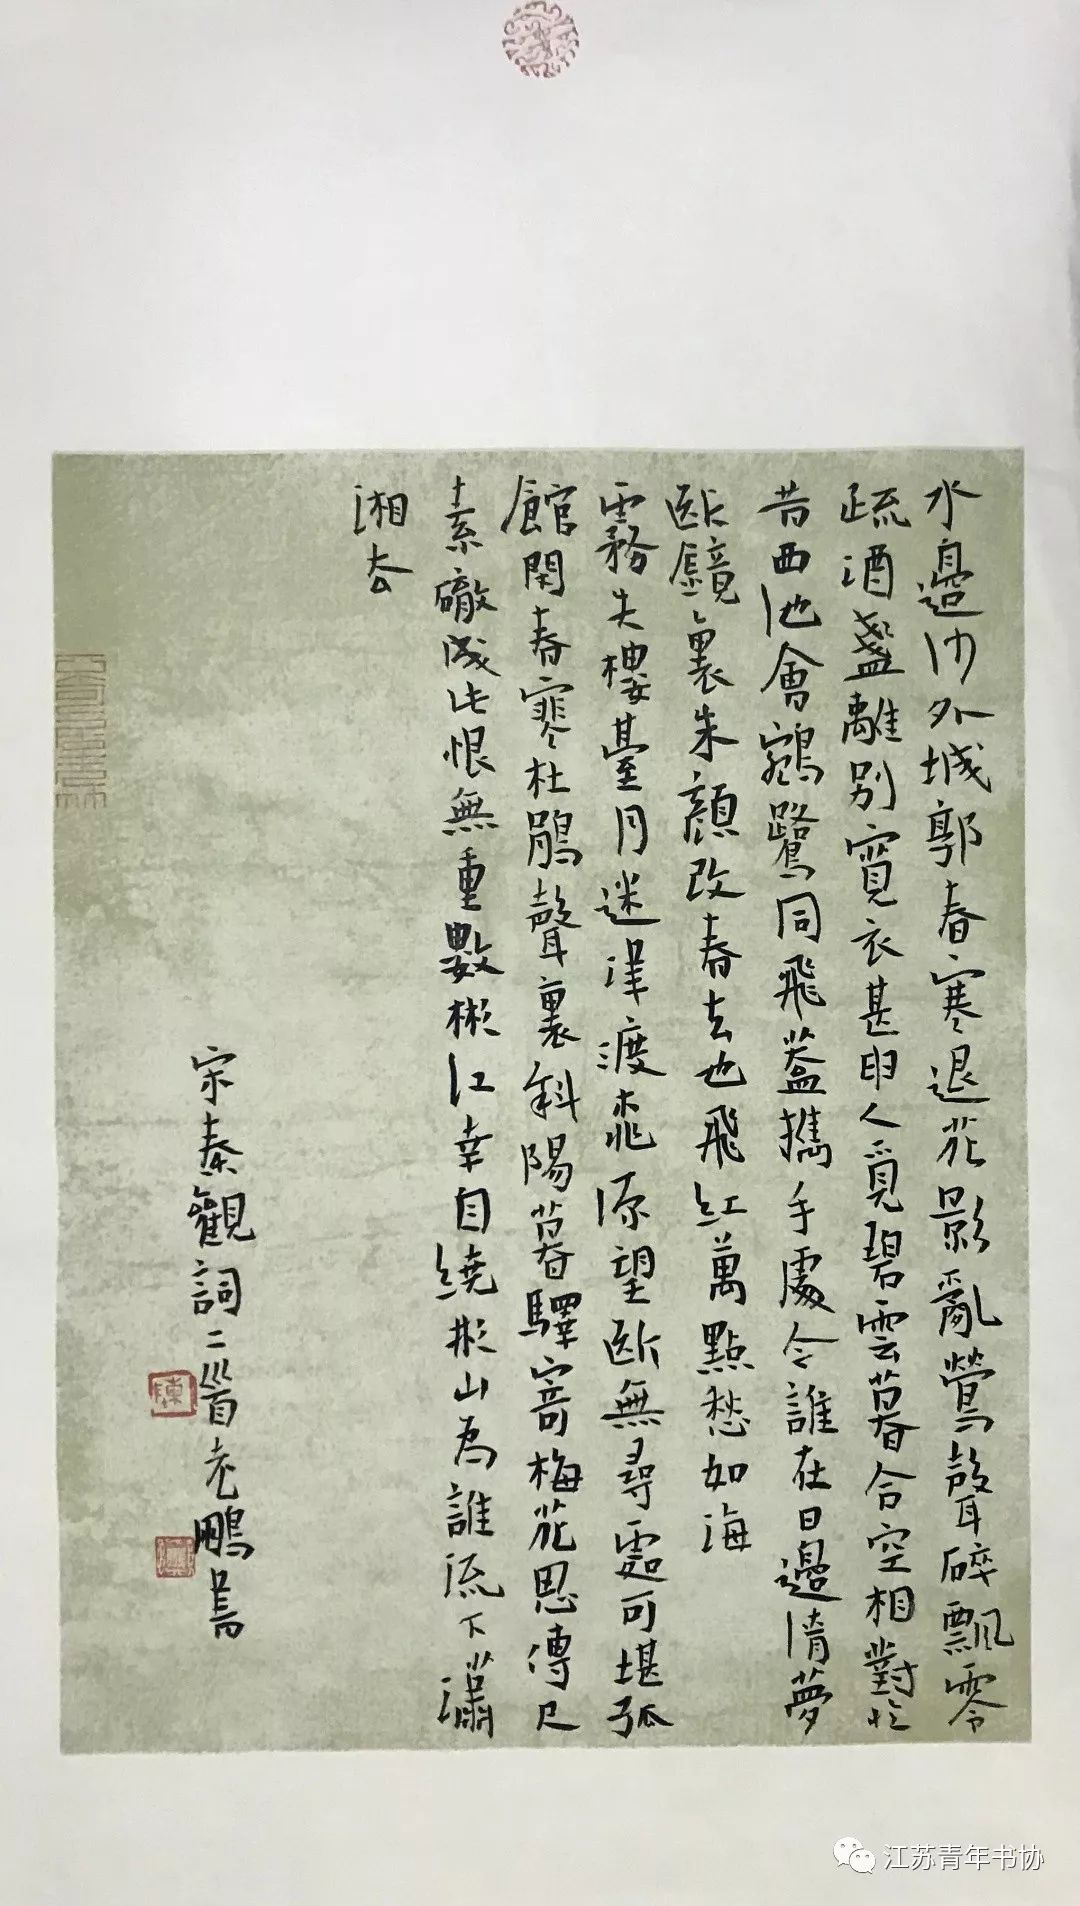 水邊沙外城郭春寒退花影亂鶯聲碎飄零
疏酒盞離別寬衣甚那人覓碧雲暮合空相對憶
昔西池會鵷鷺同飛蓋攜手處今誰在日邊清夢
斷鏡裏朱顏改春去也飛紅萬點愁如海
霧失樓臺月迷津渡桃源望斷無尋處可堪孤
館閉春寒杜鵑聲裏斜陽暮驛寄梅花思傳尺
素砌成此恨無重數郴江幸自繞郴山為誰流下瀟
湘去
宋秦觀詞二首 鵬書
江苏青年书协